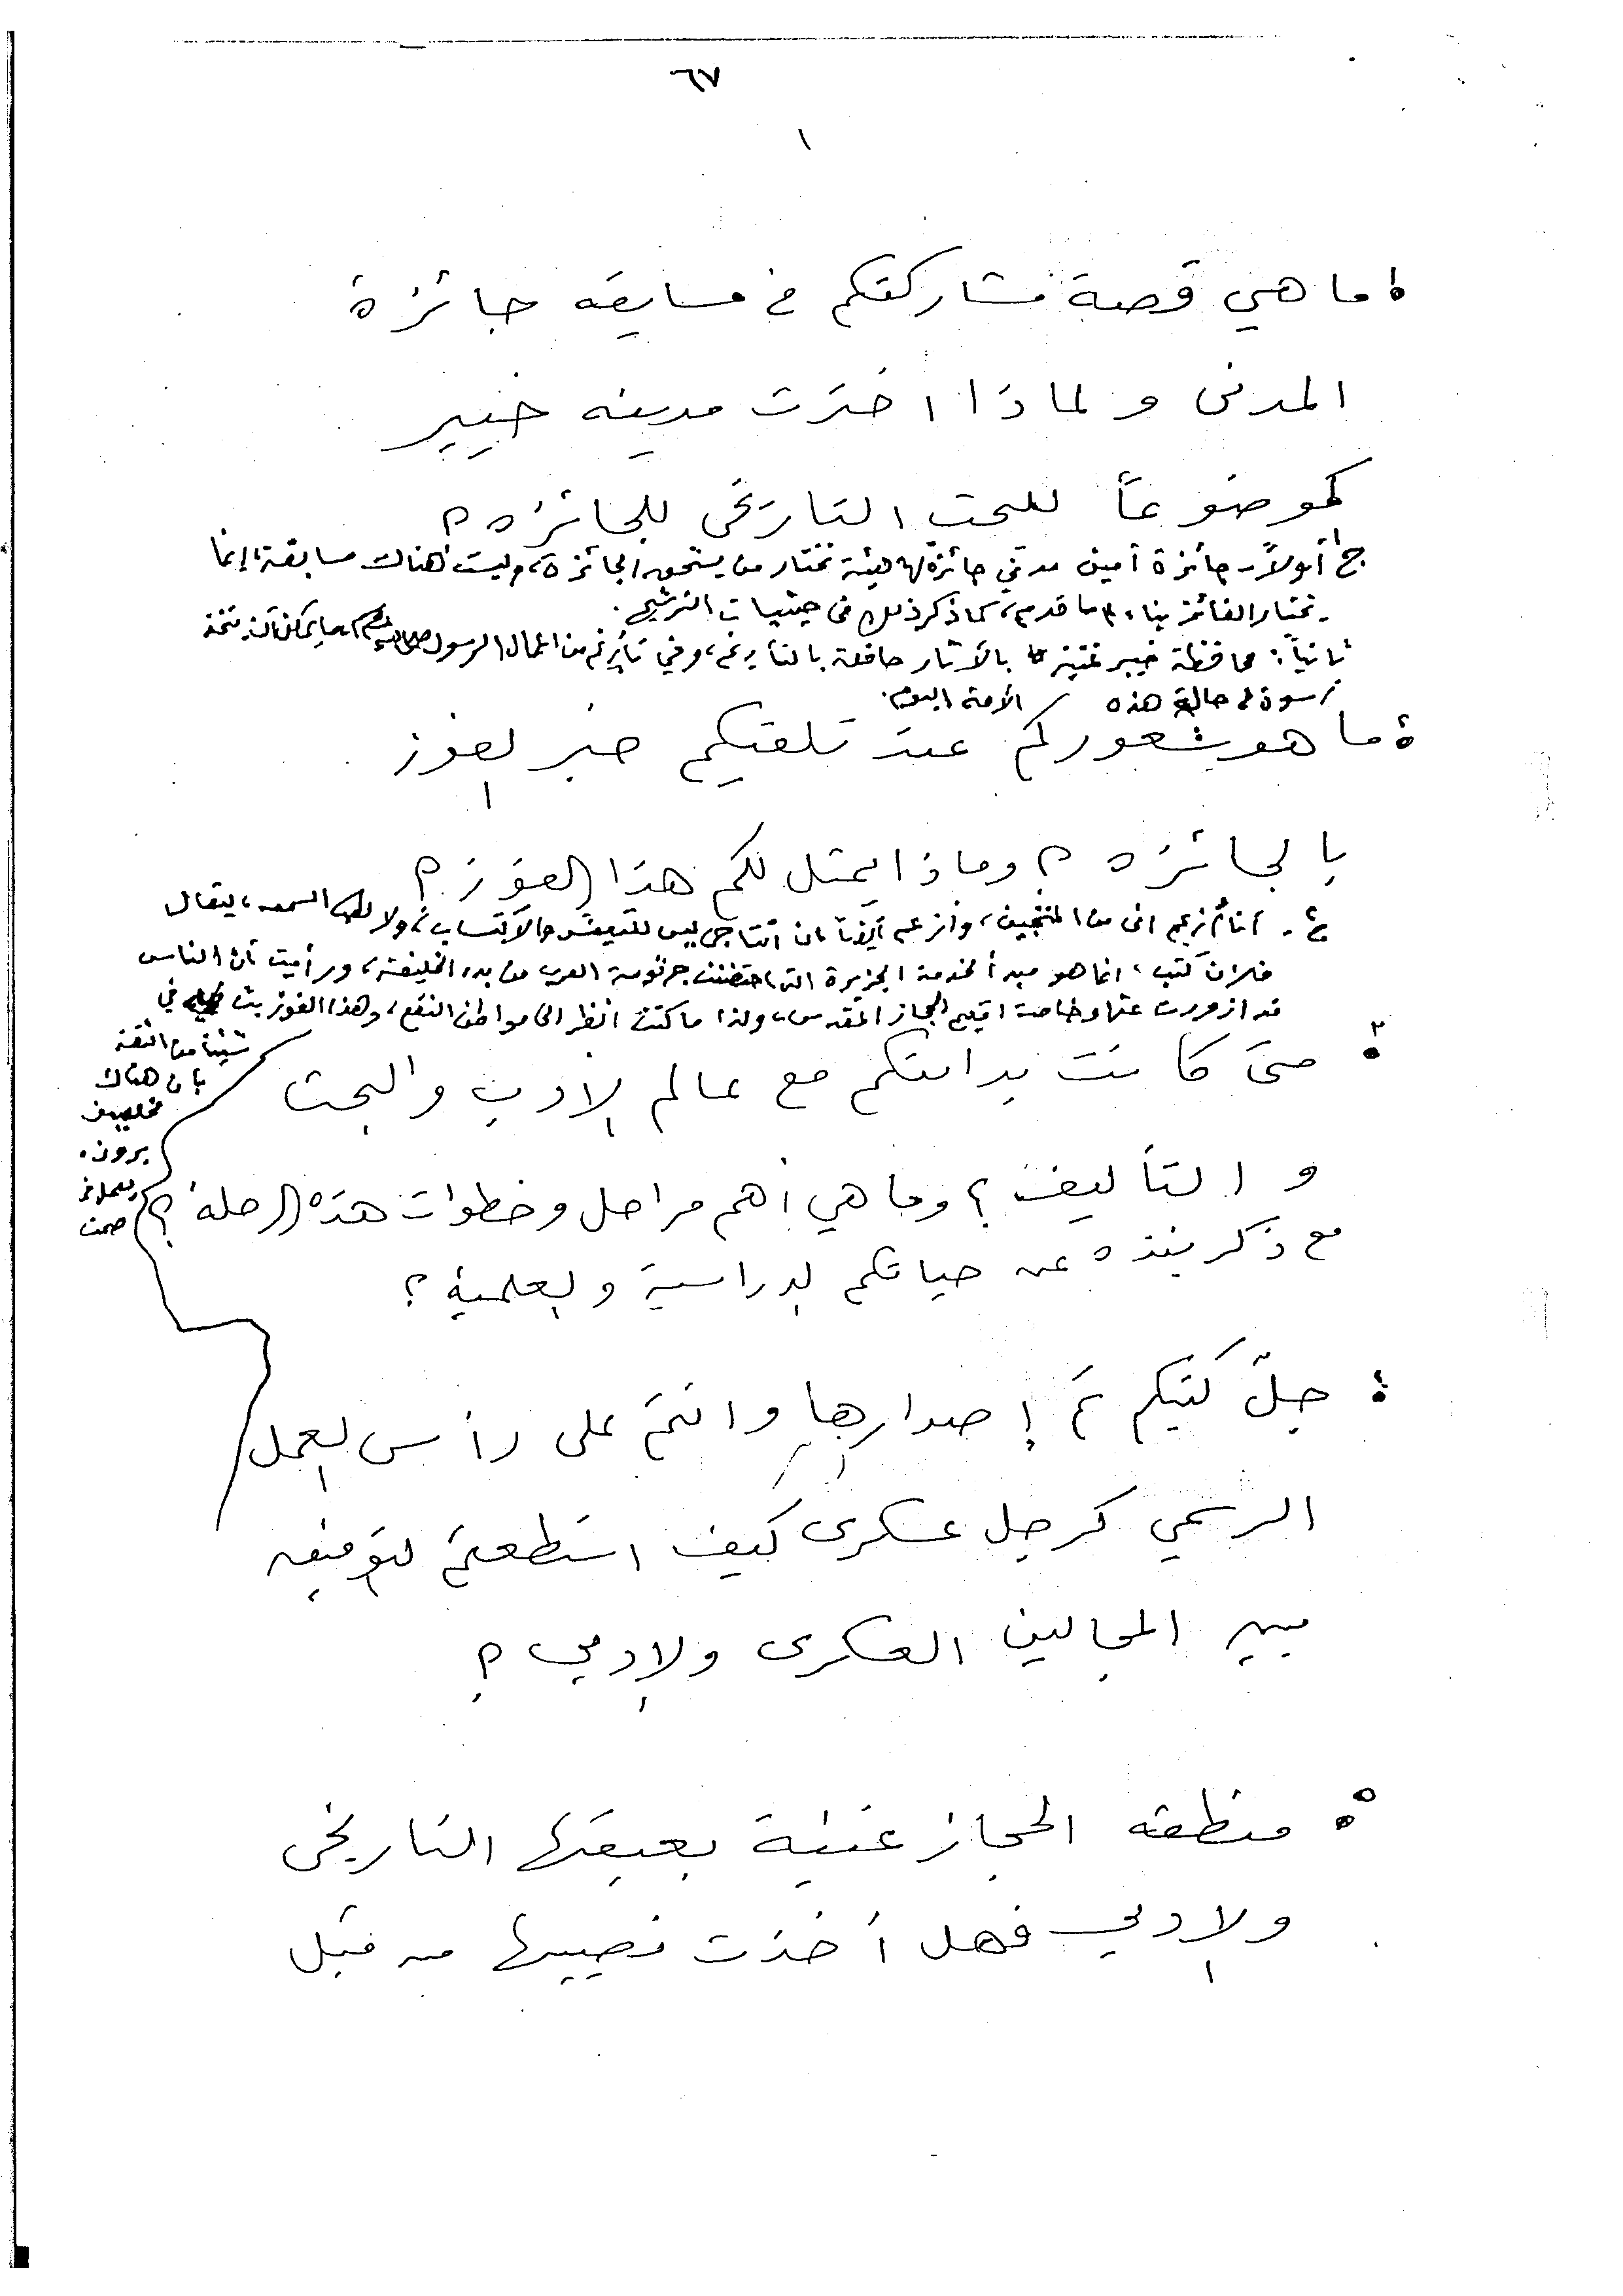 ٦٧
١
ما هي قصة مشاركتكم في مسابقه جائزة
المدني ولماذا اخترت مدينه خيبر
كموضوعاً للبحث التاريخي للجائزه ؟
ج١ أولاً - جائزة أمين مدني جائزة لها هيئة تختار من يستحق الجائزة، وليست هناك مسابقة، إنما
تختار الفائز بناء على ما قدم، كما ذكر ذلك في حيثيات الترشيح.
ثانياً: محافظة خيبر غنية بالآثار حافلة بالتأريخ، وفي تأريخها من أعمال الرسول صلى الله عليه وسلم، ما يمكن أن تتخذ
أسوة في حالة هذه الأمة اليوم.
ما هو شعوركم عند تلقيكم خبر الفوز
بالجائزه ؟ وماذا يمثل لكم هذا الفوز ؟
ج - أنا أزعم اني من المنتجين، وأزعم أيضاً أن انتاجي ليس للتعيش والاكتساب، ولا السمعه، ليقال
فلان كتب، انما هو مبدأ لخدمة الجزيرة التي احتضنت جرثومة العرب من بدء الخليقة، ورأيت أن الناس
قد ازوررت عنها وخاصة اقليم الحجاز المقدس، ولذا ما كنت أنظر الى مواطن النفع، وهذا الفوز بث في
شيئاً من الثقة
بأن هناك
مخلصين
يرون
صمت
٣ متى كانت بدايتكم مع عالم الأدب والبحث
والتأليف ؟ وما هي أهم مراحل وخطوات هذه الرحله ؟
مع ذكر نبذه عن حياتكم الدراسية والعلمية ؟
جلّ كتبكم تم إصدارها وانتم على رأس العمل
الرسمي كرجل عسكرى كيف استطعتم التوفيق
بين المجالين العسكرى والأدبي ؟
٥ منطقه الحجاز غنية بعبقها التاريخي
والأدبي فهل أخذت نصيبها من قبل